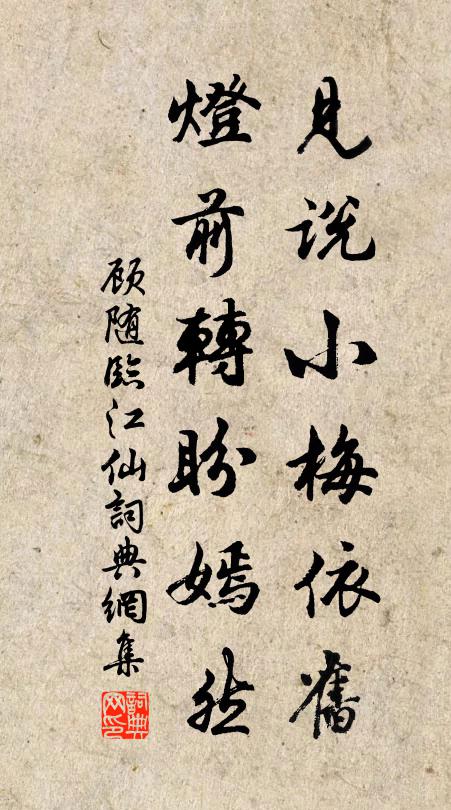 見説小梅依舊
燈前轉盼嫣然
顾随臨江仙詞典網集
詞典网印